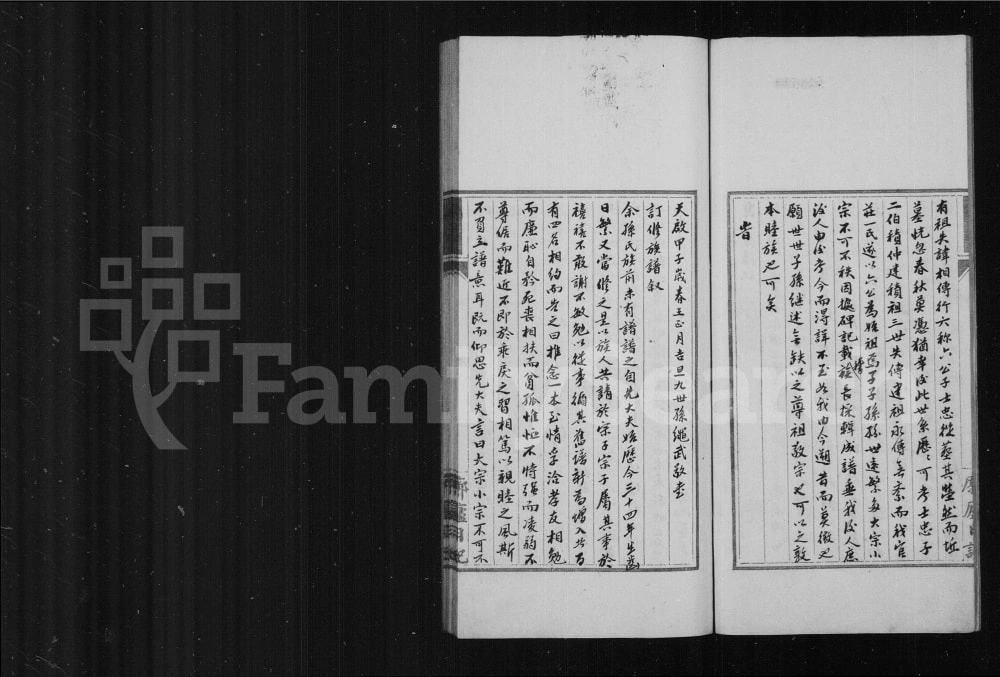 有祖失諱相傳行六称六公子士忠從葬其塋然而坵
墓恍忽春秋莫憑猶幸後此世系歷:可考士忠子
二伯積仲建積祖三世失傳建祖永傳無紊而我官
莊一氏遂以六公為始祖焉子子孫孫世遠繁多大宗小
宗不可不秩因據碑記載稽長採輯成譜垂我後人庶
後人由後考今而得詳不至如我由今遡昔而莫徵也
願世世子孫継述無缺以之尊祖敬宗也可以之敦
本睦族也可矣
旹
天啟甲子歲春王正月吉旦九世孫繩武敬書
訂修族譜叙
余孫氏族前未有譜譜之自先大夫始歷今三十四年生齒
日繁又當修之是以族人共請於宗子宗子屬其事於
禧禧不敢謝不敏勉以從事循其舊譜新為增入共百
有四名相約而告之曰推念一本至情孚洽孝友相勉
而廉恥自矜死喪相扶而貧孤惟恤不恃强而凌弱不
尊倨而難近不即於乖戾之習相篤以親睦之風斯
不負立譜意耳既而仰思先大夫言曰大宗小宗不可不
Family Sear